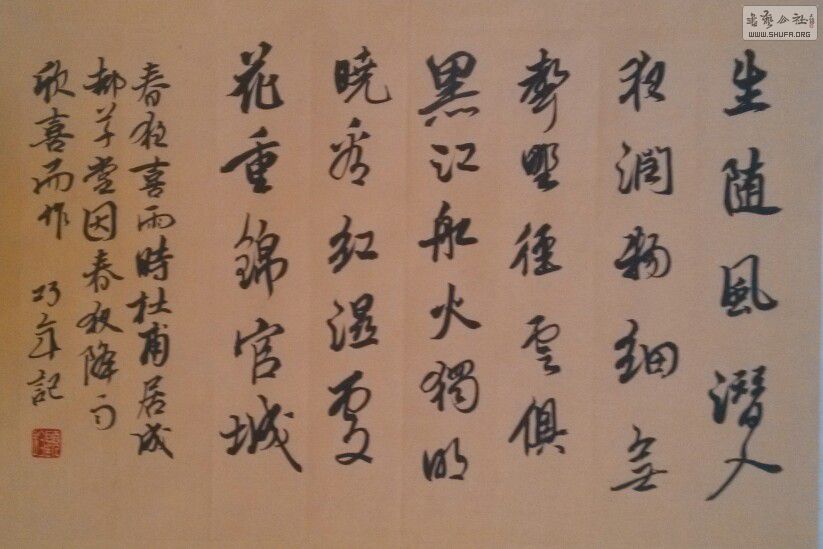 生随風潛入
夜潤物細無
聲野徑雲俱
黑江船火獨明
曉看紅濕處
花重錦官城
春夜喜雨時杜甫居成
都草堂因春夜降雨
欣喜而作 巧年記
書藝公社
WWW.SHUFA.ORG